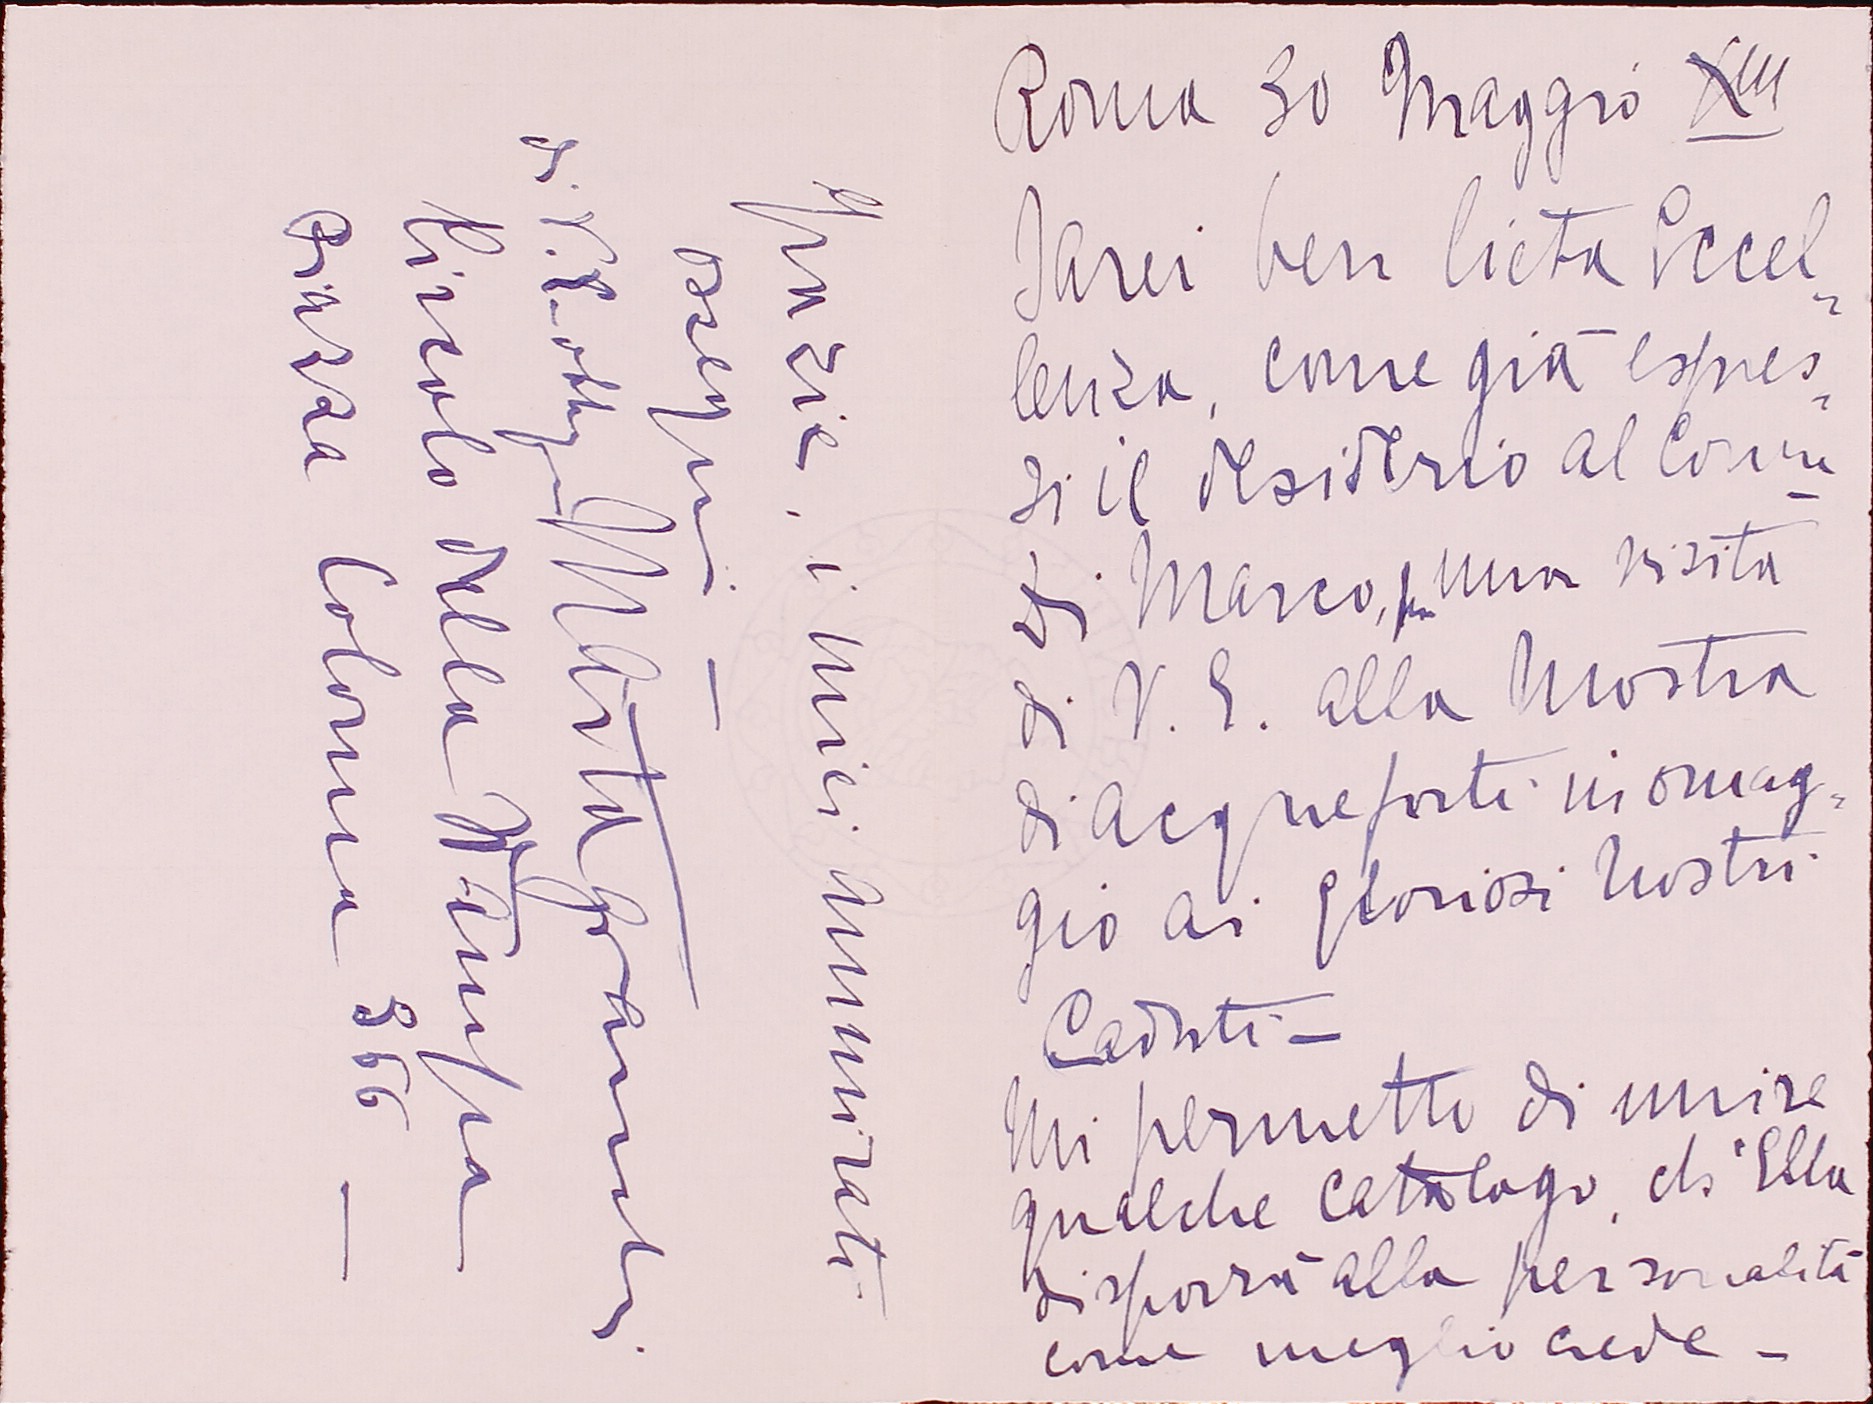 Roma 30 Maggio XIII
Sarei ben lieta Eccel=
lenza, come già espres=
si il desiderio al Comm
di Marco, per una visita
di V. E. alla Mostra
di acqueforti in omag=
gio ai gloriosi nostri
Caduti —
Mi permetto di unire
qualche catalogo, ch'Ella
disporrà alla personalità
come meglio crede —
Grazie, i miei numerati
ossequi —
di V. E.
Circolo della Stampa
Piazza Colonna 366 —